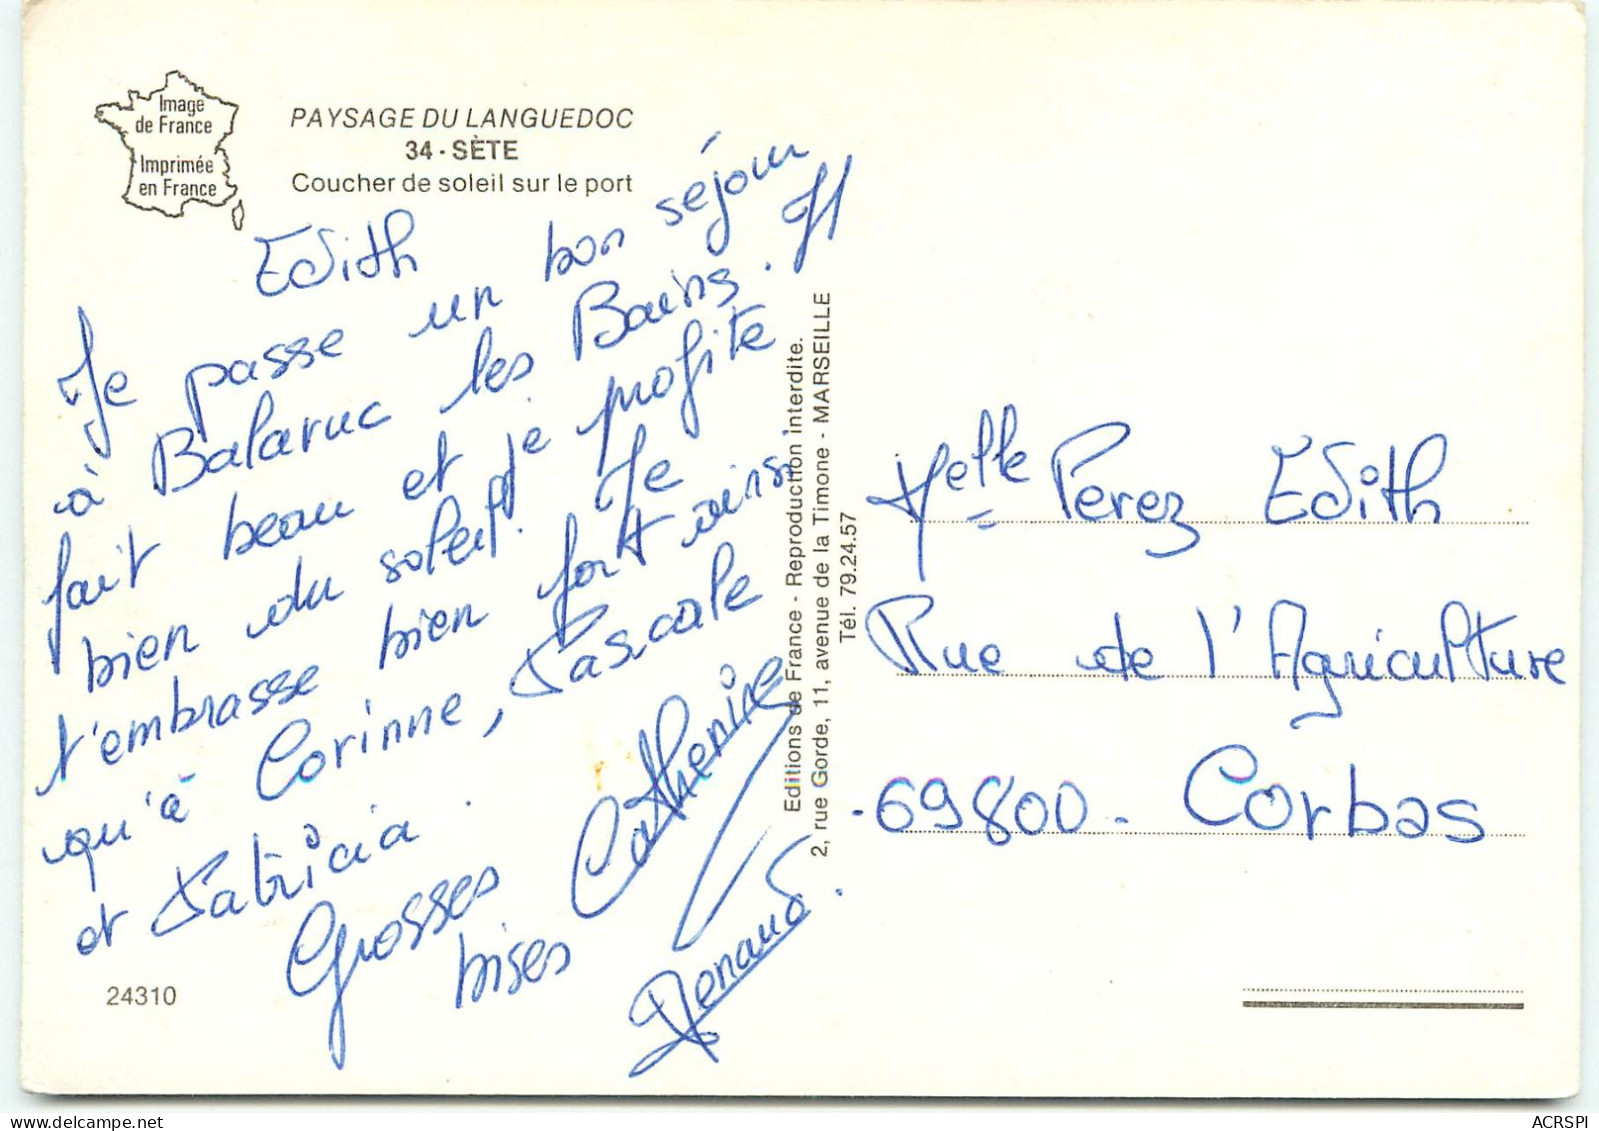 Image
de France
Imprimée
en France
PAYSAGE DU LANGUEDOC
34 - SÈTE
Coucher de soleil sur le port
Edith
Je passe un bon séjour
à Balaruc les Bains. Il
fait beau et je profite
bien du soleil. Je
t'embrasse bien fort ainsi
qu'à Corinne, Pascale
et Patricia.
Grosses
bises
Catherine
Renaud.
24310
Editions de France - Reproduction interdite.
2, rue Gorde, 11, avenue de la Timone - MARSEILLE
Tél. 79.24.57
Melle Perez Edith
Rue de l'Agriculture
.69800. Corbas
delcampe.net
ACRSPI